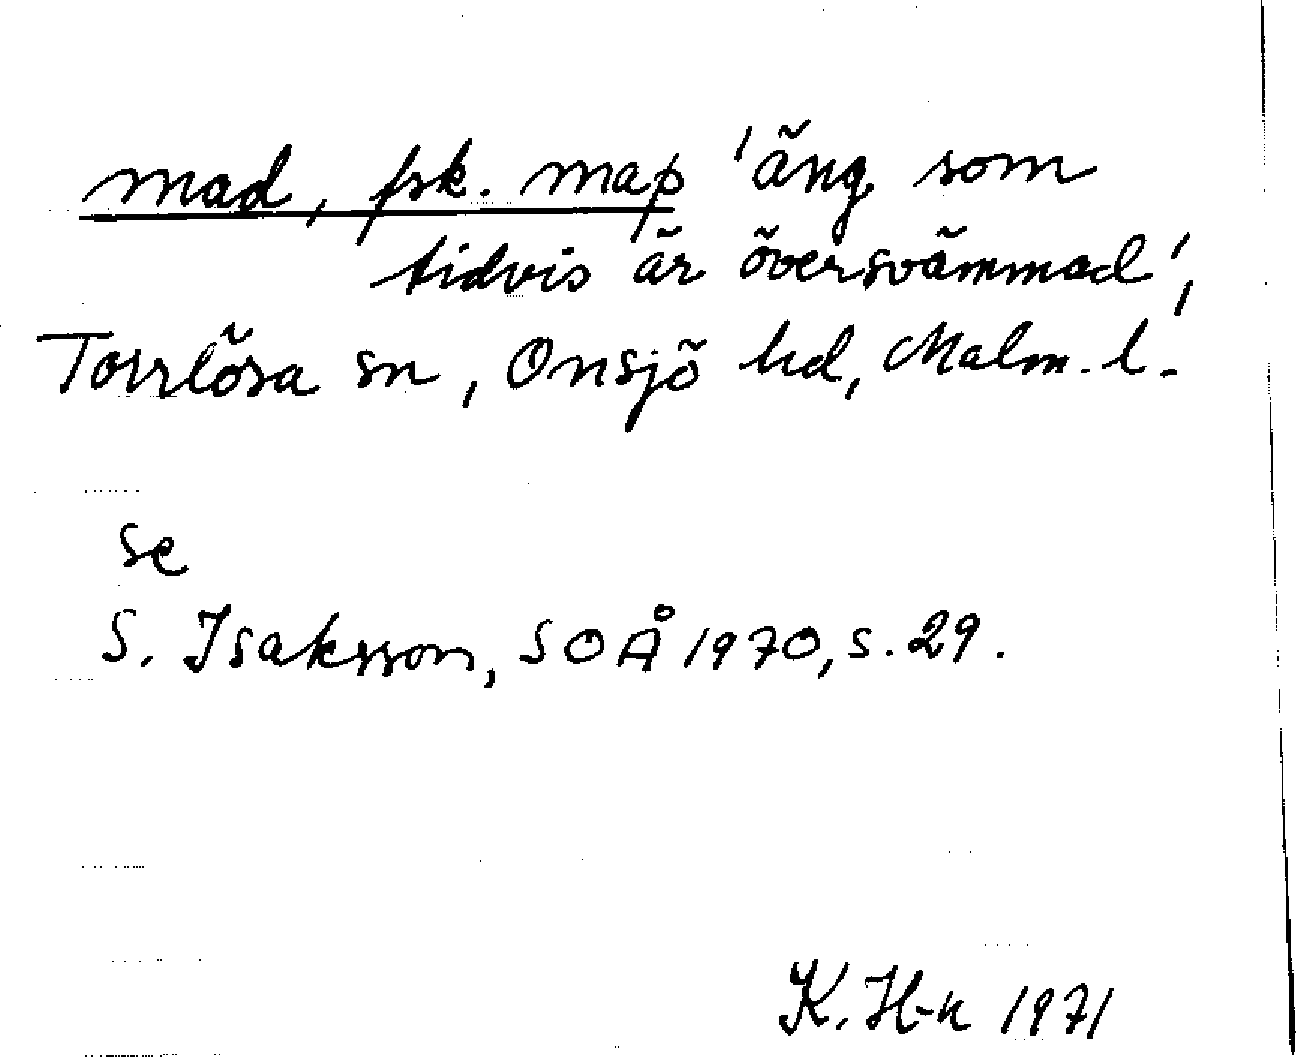 mad, fsk. maþ 'äng som
tidvis är översvämmad',
Torrlösa sn, Onsjö hd, Malm. l.
se
S. Isaksson, SOÅ 1970, s. 29.
K. H-n 1971